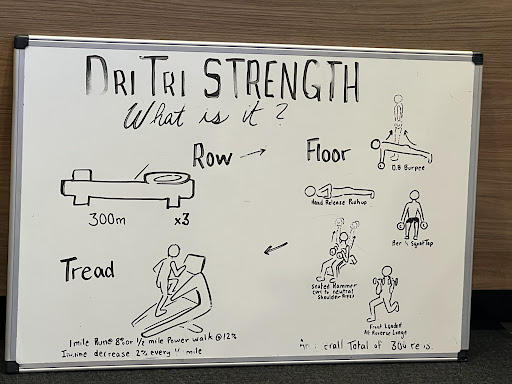 DRI TRI STRENGTH
What is it?
Row → Floor
D.B Burpee
300m x3
Hand Release Pushup
Squat Tap
Seated Hammer
Curl to neutral
Shoulder Press
Tread
Front Loaded
Alt Reverse Lunge
1 mile Run @ 8% or 1/2 mile Power walk @ 12%
Incline decrease 2% every mile
Total of 300 reps